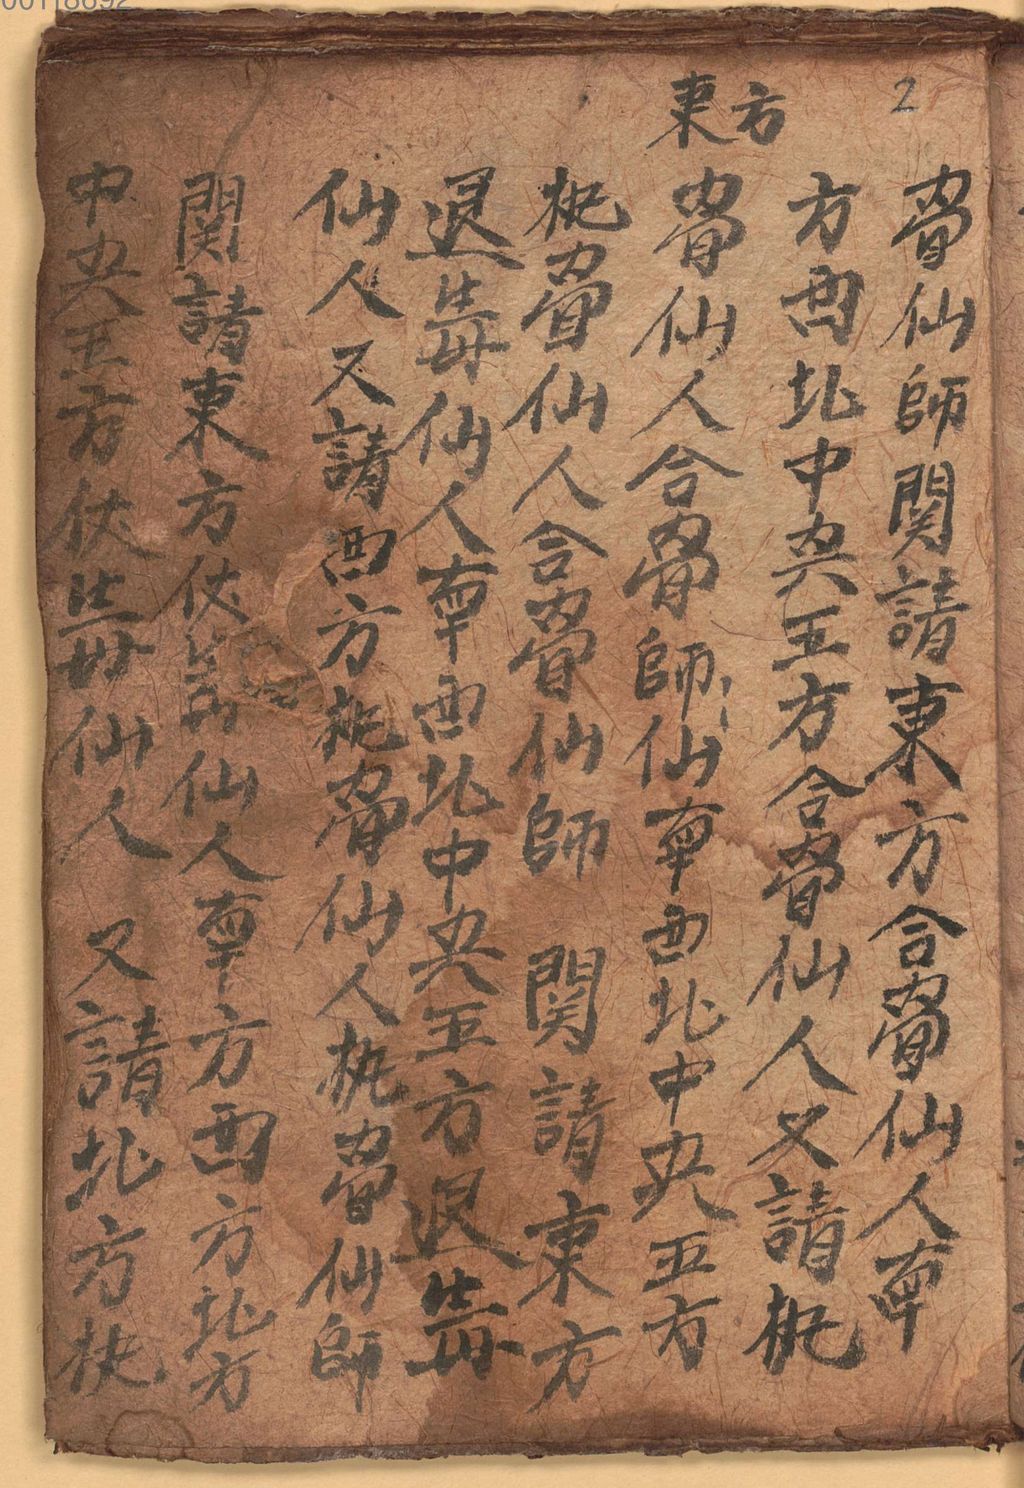 00118692
2
東方
仙師関請東方合仙人南
方西北中央五方合仙人又請桃
仙人合師仙南西北中央五方
桃仙人合仙師 関請東方
退仙人南西北中央五方退
仙人又請西方桃仙人桃仙師
関請東方伏仙人南方西方北方
中央五方伏仙人 又請北方